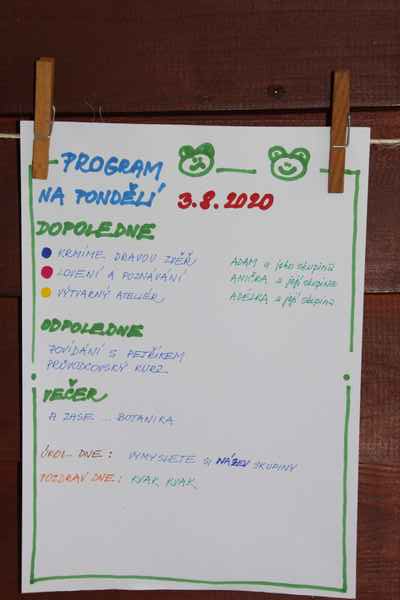 PROGRAM
NA PONDĚLÍ 3.8.2020
DOPOLEDNE
KRMÍME DRAVOU ZVĚŘ ADAM a jeho skupina
LOVENÍ A POZNÁVÁNÍ ANIČKA a její skupina
VÝTVARNÝ ATELIÉR ADÉLKA a její skupina
ODPOLEDNE
POVÍDÁNÍ S PETŘÍKEM
PRŮVODCOVSKÝ KURZ
VEČER
A ZASE ... BOTANIKA
ÚKOL DNE: VYMYSLETE si NÁZEV SKUPINY
POZDRAV DNE: KVAK, KVAK